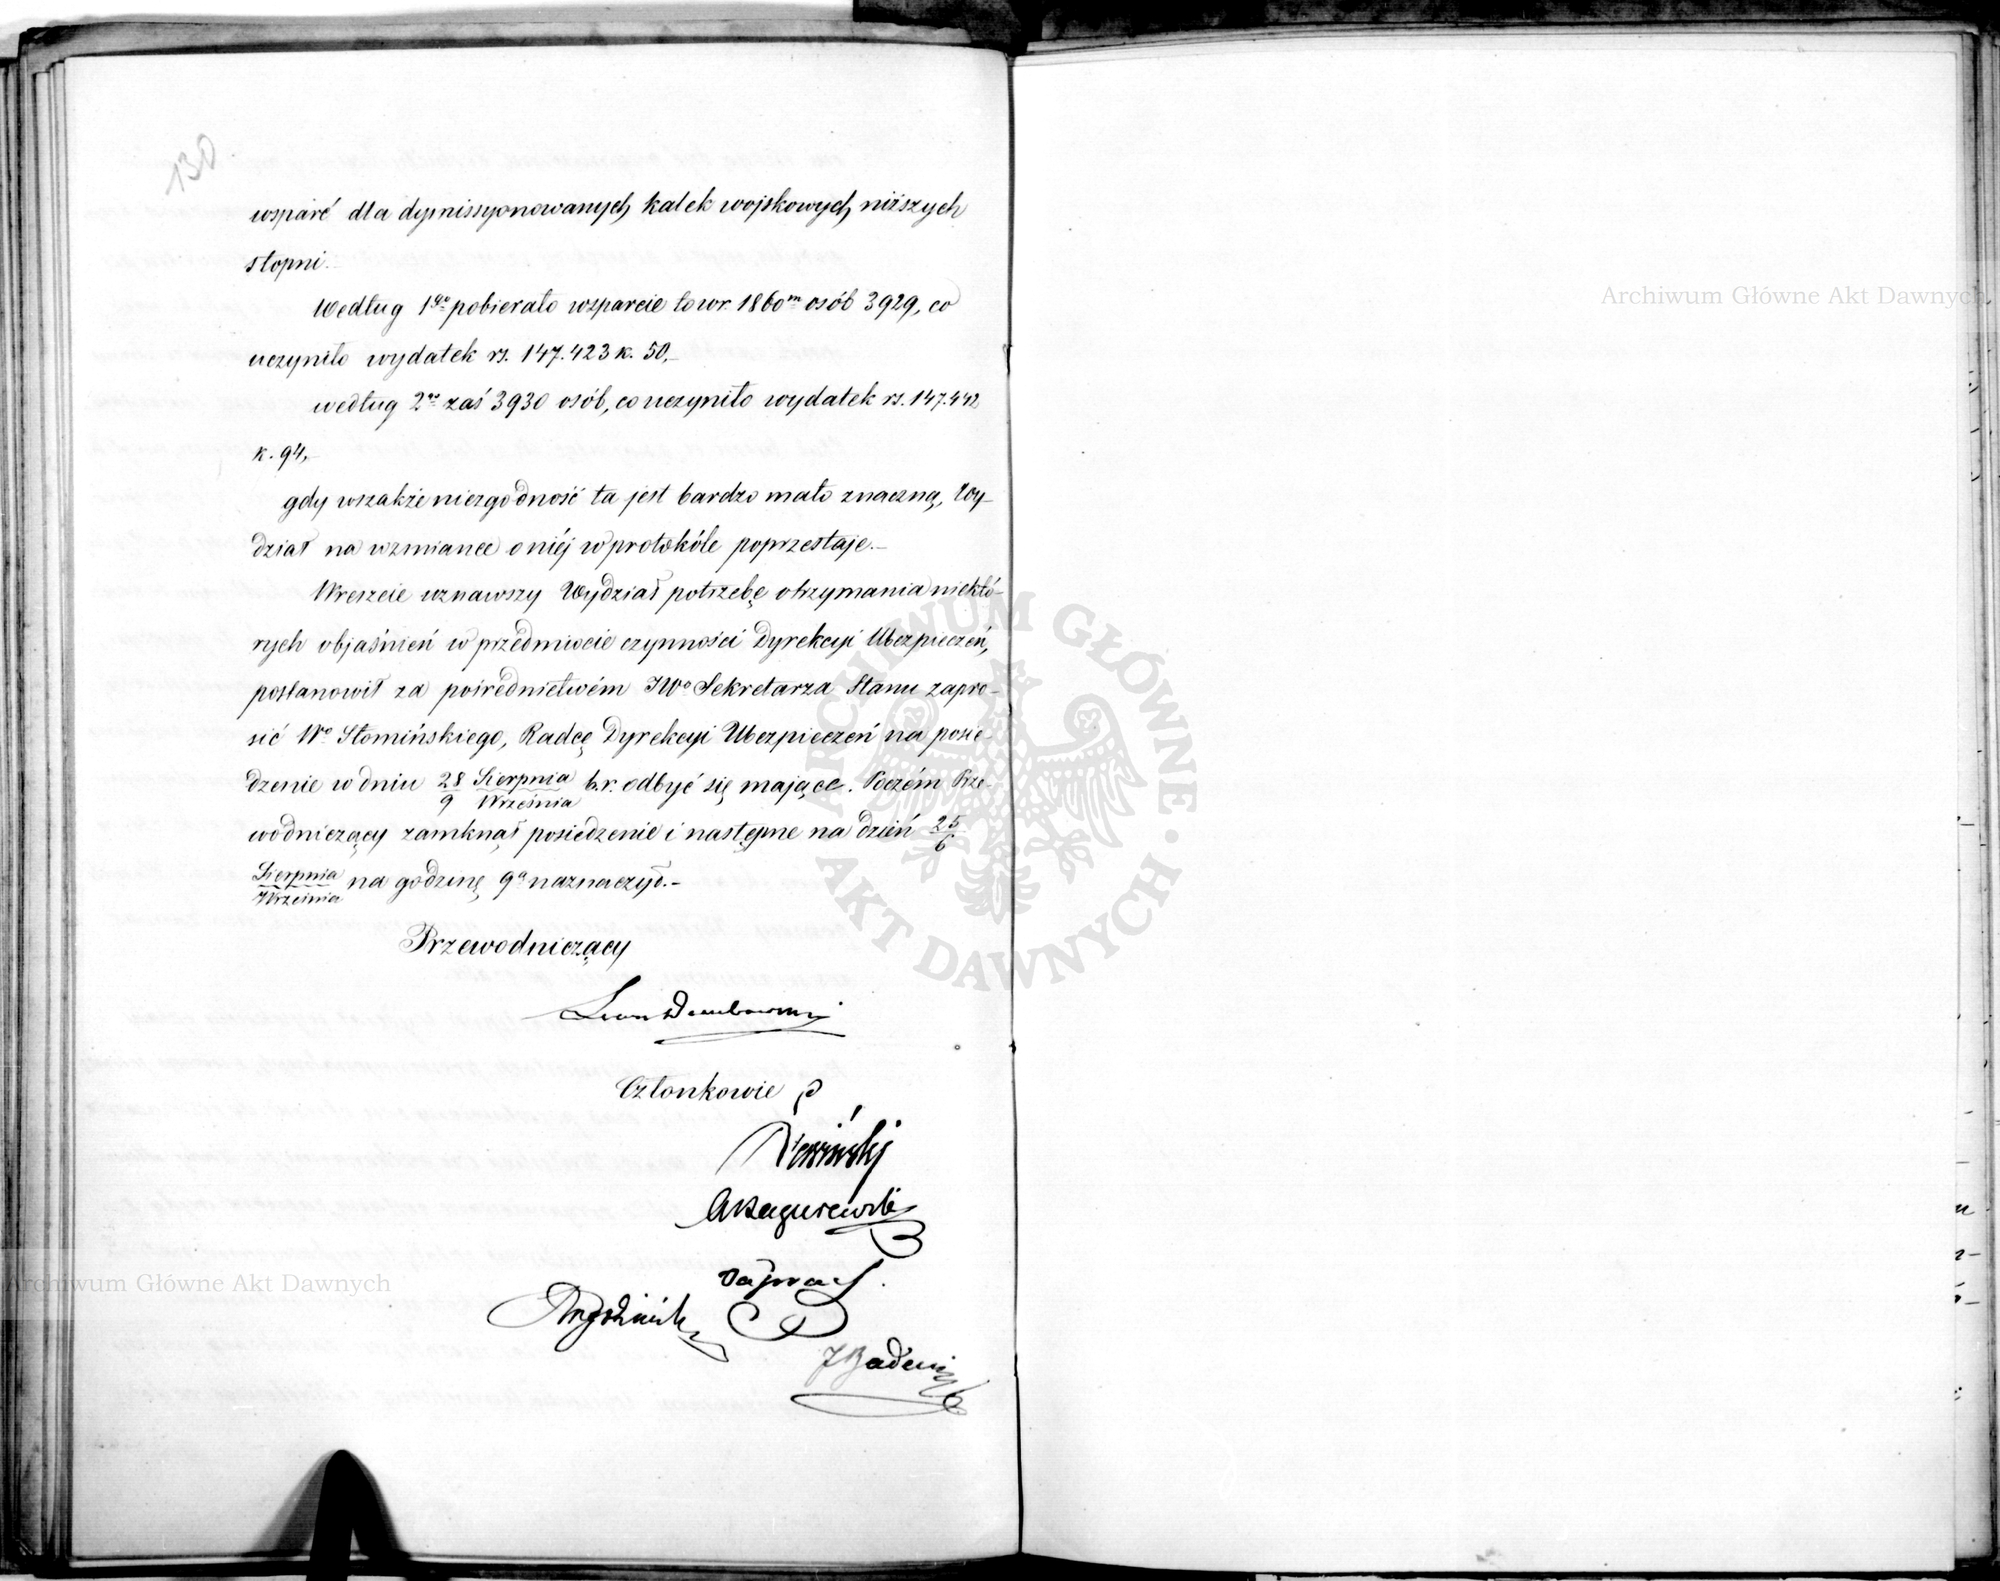 130
wsparć dla dymissyonowanych kalek wojskowych niższych
stopni.—
Według 1go pobierało wsparcie to w r. 1860m osób 3929, co
uczyniło wydatek rs. 147.423 k. 50,—
według 2go zaś 3930 osób, co uczyniło wydatek rs. 147.442
k. 94,—
gdy wszakże niezgodność ta jest bardzo mało znaczną, Wy-
dział na wzmiance o niéj w protokóle poprzestaje.—
Wreszcie uznawszy Wydział potrzebę otrzymania niektó-
rych objaśnień w przedmiocie czynności Dyrekcyi Ubezpieczeń,
postanowił za pośrednictwém JWo Sekretarza Stanu zapro-
sić Wo Słomińskiego, Radcę Dyrekcyi Ubezpieczeń na posie-
dzenie w dniu 28/9 Sierpnia/Września b.r. odbyć się mające. Poczém Prze-
wodniczący zamknął posiedzenie i następne na dzień 25/6
Sierpnia/Września na godzinę 9a naznaczył.—
Przewodniczący
Leon Dembowski
Członkowie
JBadeni
Archiwum Główne Akt Dawnych
Archiwum Główne Akt Dawnych
ARCHIWUM GŁÓWNE · AKT DAWNYCH ·